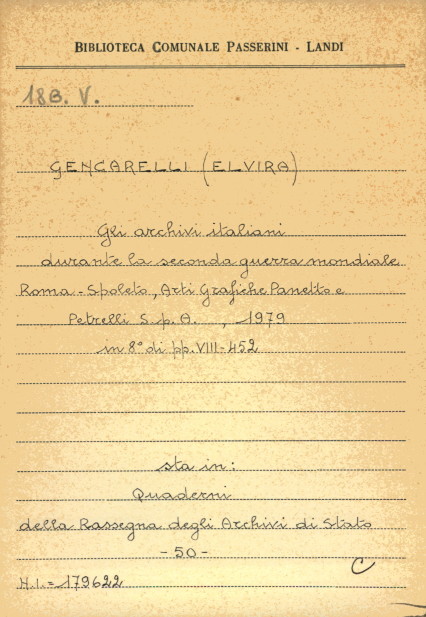 BIBLIOTECA COMUNALE PASSERINI - LANDI
18B. V.
GENCARELLI (ELVIRA)
Gli archivi italiani
durante la seconda guerra mondiale
Roma - Spoleto, Arti Grafiche Panetto e
Petrelli S.p.A. , 1979
in 8° di pp. VIII-452
sta in:
Quaderni
della Rassegna degli Archivi di Stato
- 50 -
C
N.I. = 179622